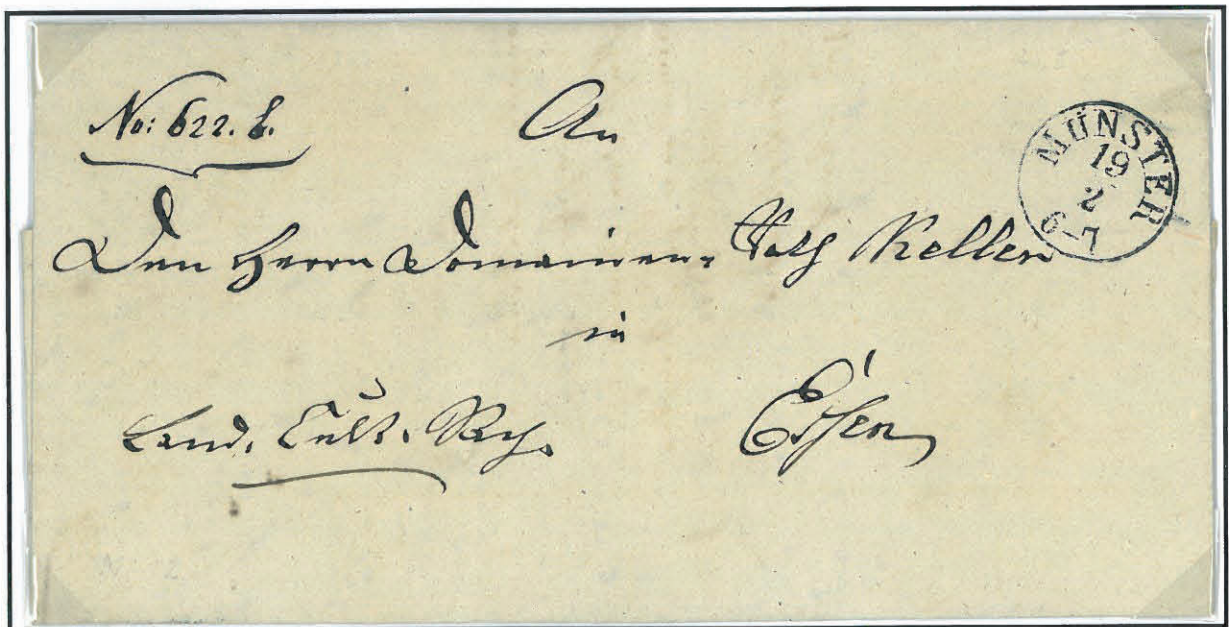 No: 622. b.
An
MÜNSTER
19
2
6-7
Den Herrn Domainen-Rath Keller
in
Land. Cult. Sach.
Essen